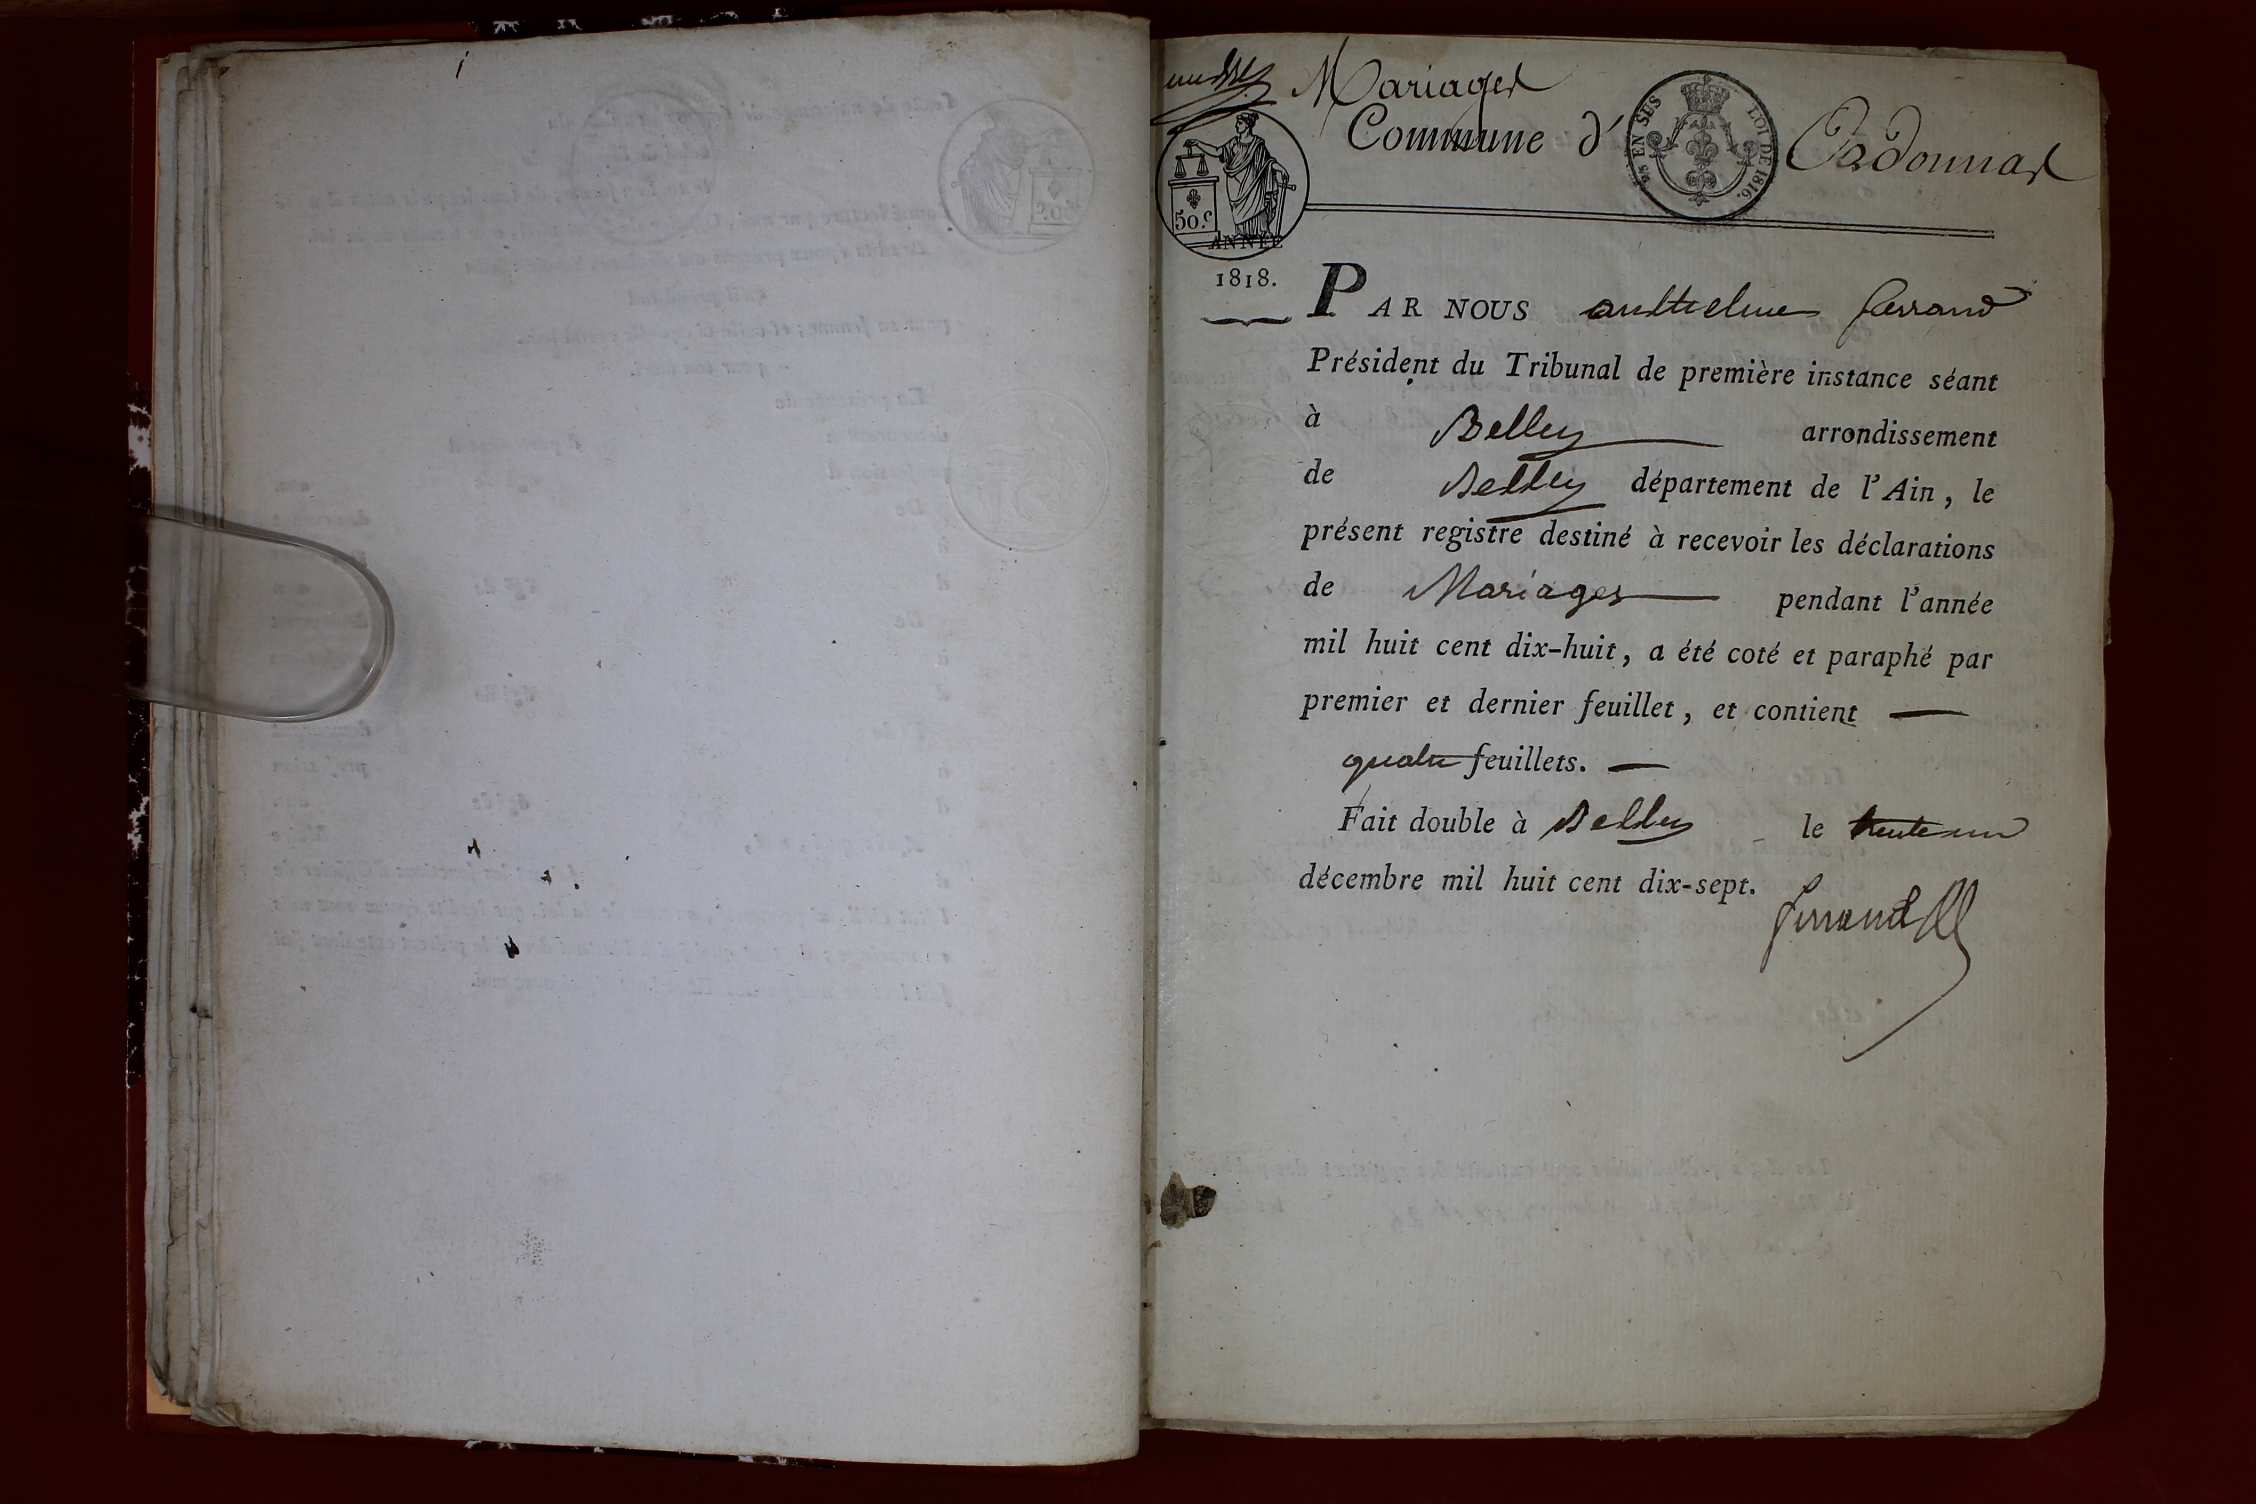 Mariages
Commune d' Ordonnas
EN SUS
LOI DE 1816.
50 c
ANNÉE
1818.
PAR NOUS anthelme ferrand
Président du Tribunal de première instance séant
à Belley arrondissement
de Belley département de l'Ain, le
présent registre destiné à recevoir les déclarations
de Mariages pendant l'année
mil huit cent dix-huit, a été coté et paraphé par
premier et dernier feuillet, et contient
quatre feuillets.
Fait double à Belley le trente un
décembre mil huit cent dix-sept.
ferrand